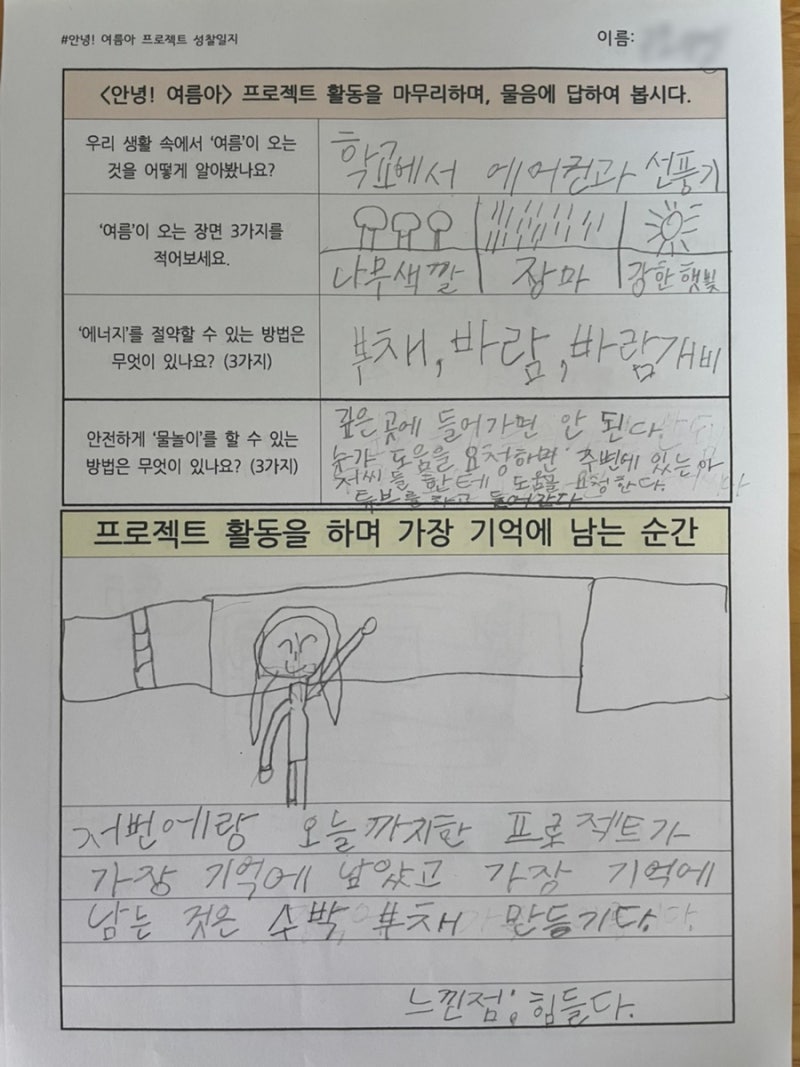 #안녕! 여름아 프로젝트 성찰일지
이름:
<안녕! 여름아> 프로젝트 활동을 마무리하며, 물음에 답하여 봅시다.
우리 생활 속에서 '여름'이 오는
것을 어떻게 알아봤나요?
학교에서 에어컨과 선풍기
'여름'이 오는 장면 3가지를
적어보세요.
나무색깔 장마 강한햇빛
'에너지'를 절약할 수 있는 방법은
무엇이 있나요? (3가지)
부채, 바람, 바람개비
안전하게 '물놀이'를 할 수 있는
방법은 무엇이 있나요? (3가지)
깊은 곳에 들어가면 안 된다.
누가 도움을 요청하면 주변에 있는 아
저씨들 한테 도움을 요청한다.
튜브를 타고 들어간다
프로젝트 활동을 하며 가장 기억에 남는 순간
저번에랑 오늘까지한 프로젝트가
가장 기억에 남았고 가장 기억에
남는 것은 수박 부채 만들기다.
느낀점: 힘들다.